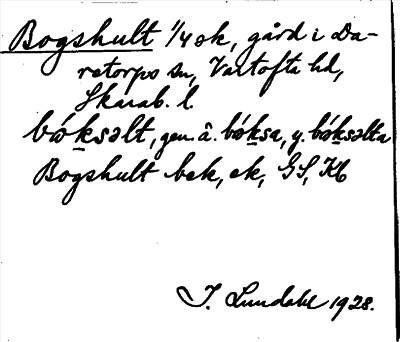 Bogshult 1/4 sk, gård i Da-
retorps sn, Vartofta hd,
Skarab. l.
bóksəlt, gen. â. bóksa, y. bóksəlta
Bogshult bek, ek, GS, Kb
I. Lundahl 1928.